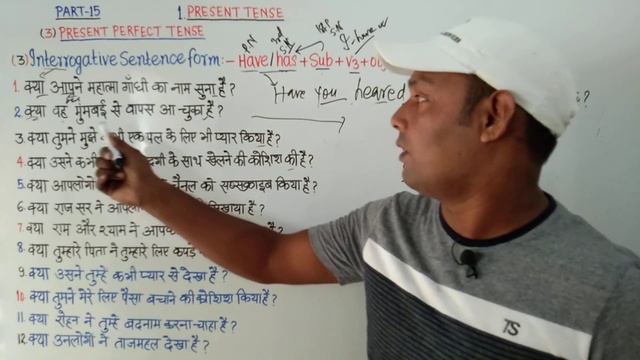 PART-15 1. PRESENT TENSE
(3) PRESENT PERFECT TENSE
(3) Interrogative Sentence form:- Have/has + Sub + V3 +
1. क्या आपने महात्मा गाँधी का नाम सुना है?
Have you heared
2. क्या वह मुंमबई से वापस आ चुका है?
3. क्या तुमने मुझे एक पल के लिए भी प्यार किया है?
4. क्या उसने कभी के साथ खेलने की कोशिश की है?
5. क्या आपलोगो चैनल को सब्सक्राइब किया है?
6. क्या राज सर ने सिखाया है?
7. क्या राम और श्याम ने है?
8. क्या तुम्हारे पिता ने तुम्हारे लिए कपड़े
9. क्या उसने तुम्हे कभी प्यार से देखा है?
10. क्या तुमने मेरे लिए पैसा बचाने की कोशिश किया है?
11. क्या रोहन ने तुम्हे बदनाम करना चाहा है?
12. क्या उनलोगो ने ताजमहल देखा है?
TS